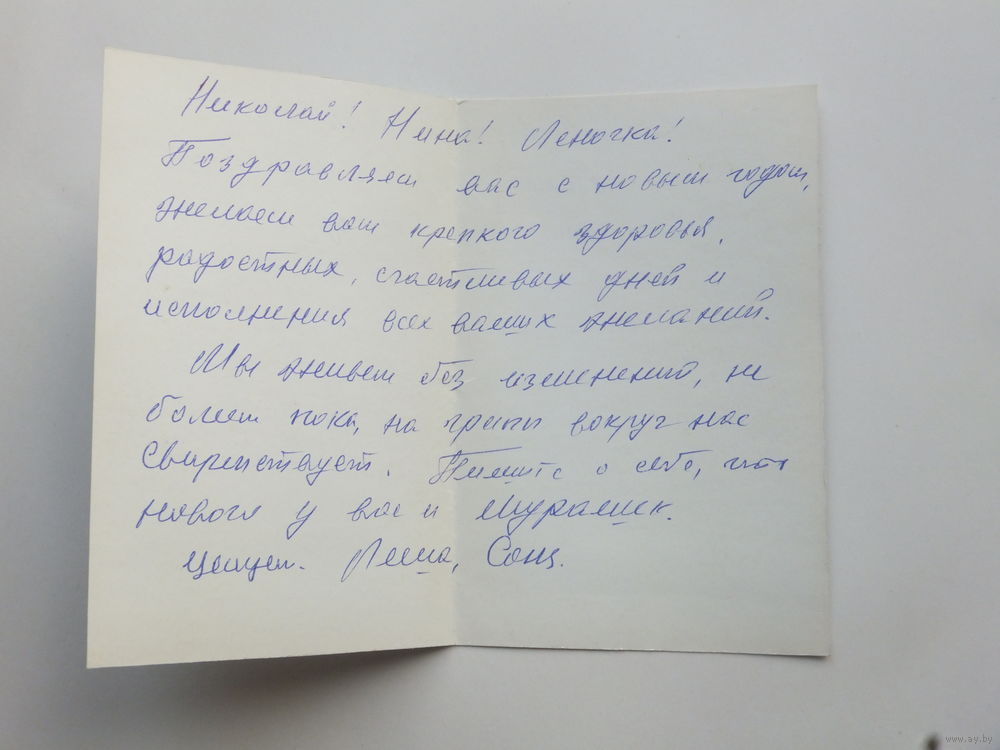 Николай! Нина! Леночка!
Поздравляем вас с новым годом,
желаем вам крепкого здоровья,
радостных, счастливых дней и
исполнения всех ваших желаний.
Мы живем без изменений, не
болеем пока, но грипп вокруг нас
свирепствует. Пишите о себе, что
нового у вас и
Целуем. Леша, Соня.
www.ay.by